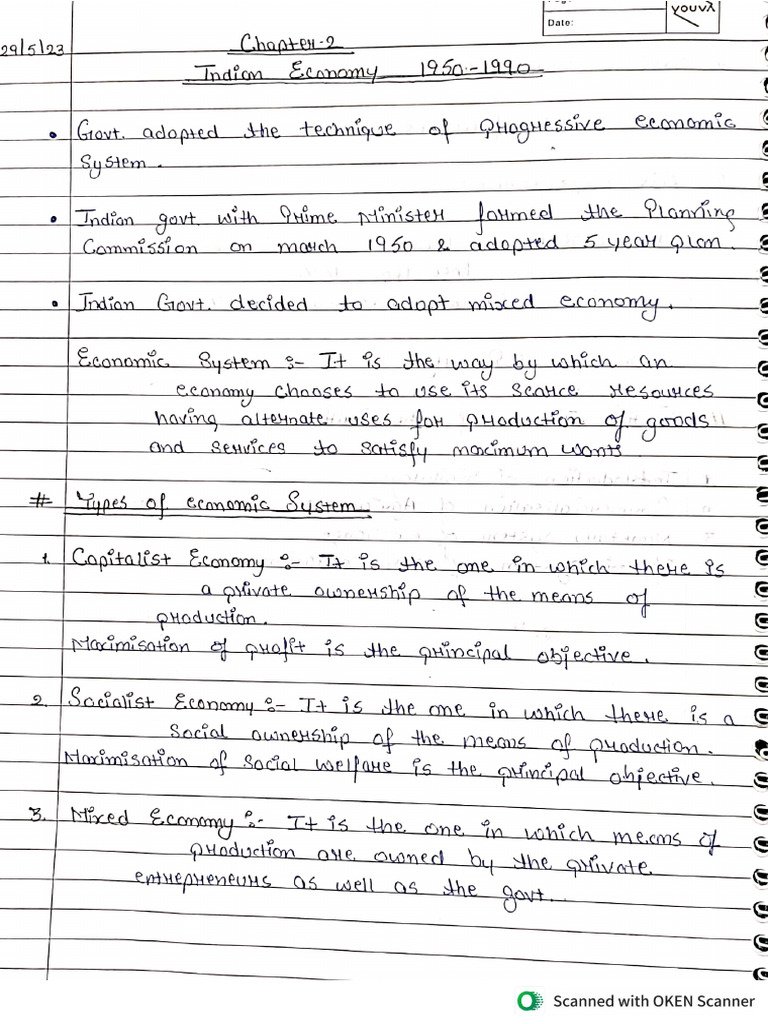 youva
Date:
29/5/23
Chapter-2
Indian Economy 1950-1990
• Govt. adopted the technique of progressive economic
System.
• Indian govt. with Prime Minister formed the Planning
Commission on march 1950 & adopted 5 year plan.
• Indian Govt. decided to adopt mixed economy.
Economic System :- It is the way by which an
economy chooses to use its scarce resources
having alternate uses for production of goods
and services to satisfy maximum wants
# Types of economic System
1. Capitalist Economy :- It is the one in which there is
a private ownership of the means of
production.
Maximisation of profit is the principal objective.
2. Socialist Economy :- It is the one in which there is a
Social ownership of the means of production.
Maximisation of social welfare is the principal objective.
3. Mixed Economy :- It is the one in which means of
production are owned by the private
entrepreneurs as well as the govt.
Scanned with OKEN Scanner